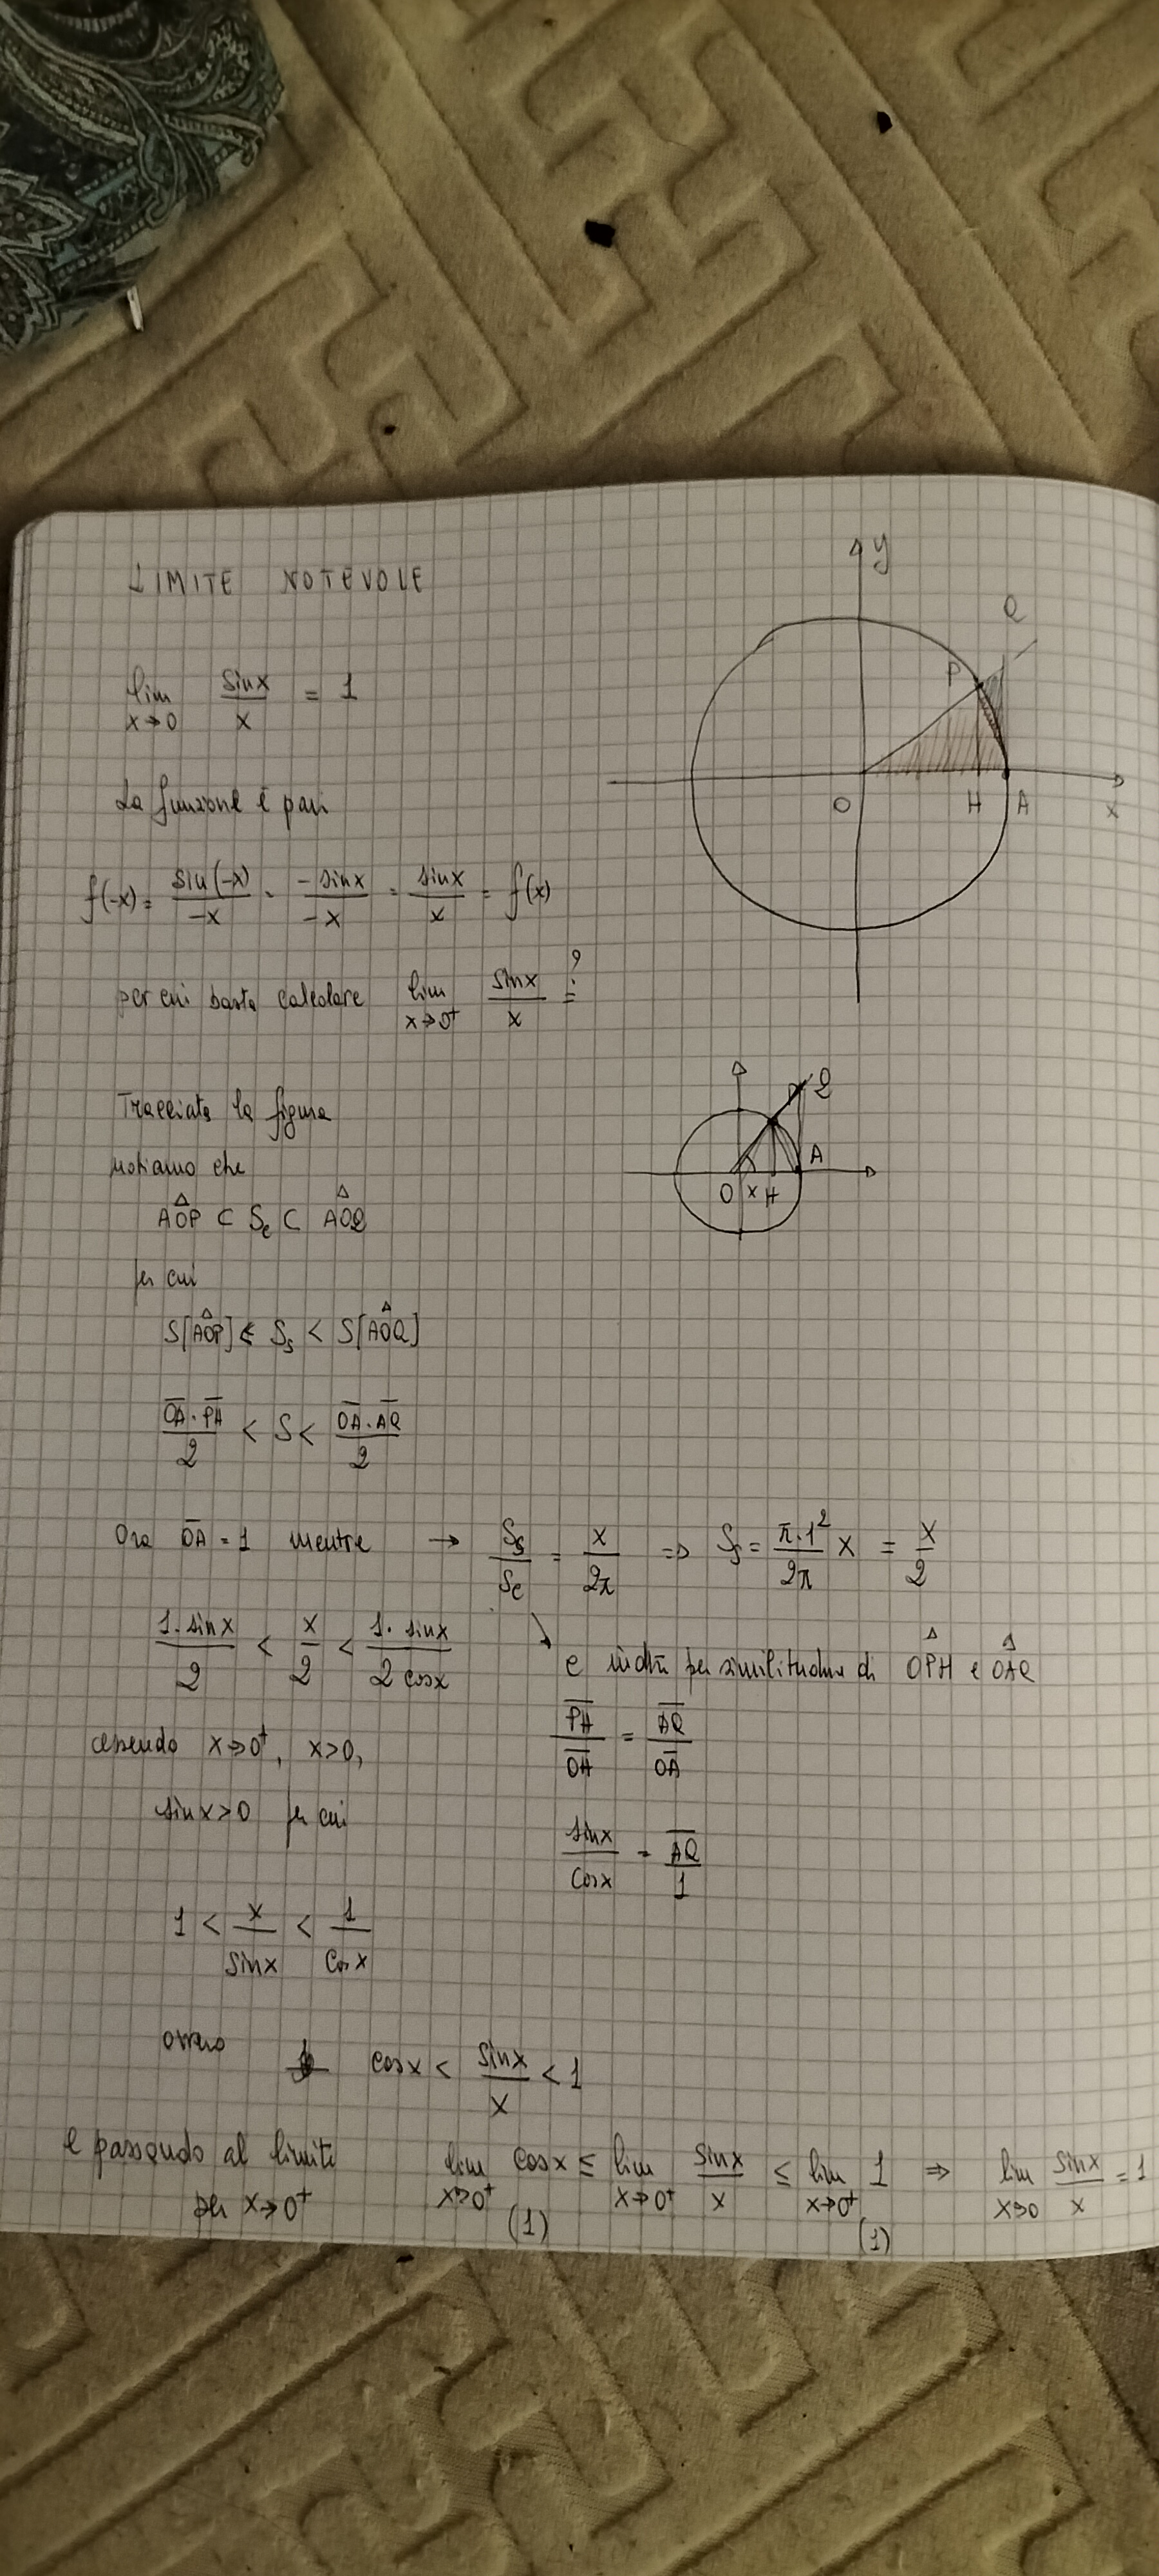 LIMITE NOTEVOLE
y
Q
P
O H A x
lim sinx/x = 1
x→0
La funzione è pari
f(-x) = sin(-x)/-x = -sinx/-x = sinx/x = f(x)
per cui basta calcolare lim sinx/x = ?
x→0⁺
Tracciata la figura
notiamo che
Q
A
O x H
AÔP ⊂ Sc ⊂ AÔQ
per cui
S[AÔP] < Ss < S[AÔQ]
OA·PH/2 < S < OA·AQ/2
Ora OA = 1 mentre → Ss/Sc = x/2π ⇒ Ss = π·1²/2π x = x/2
1·sinx/2 < x/2 < 1·sinx/2cosx
e inoltre per similitudine di OPH e OAQ
PH/OH = AQ/OA
essendo x→0⁺, x>0,
sinx>0 per cui
sinx/cosx = AQ/1
1 < x/sinx < 1/cosx
ovvero cosx < sinx/x < 1
e passando al limite lim cosx ≤ lim sinx/x ≤ lim 1 ⇒ lim sinx/x = 1
per x→0⁺ x→0⁺ x→0⁺ x→0⁺ x→0
(1) (1)